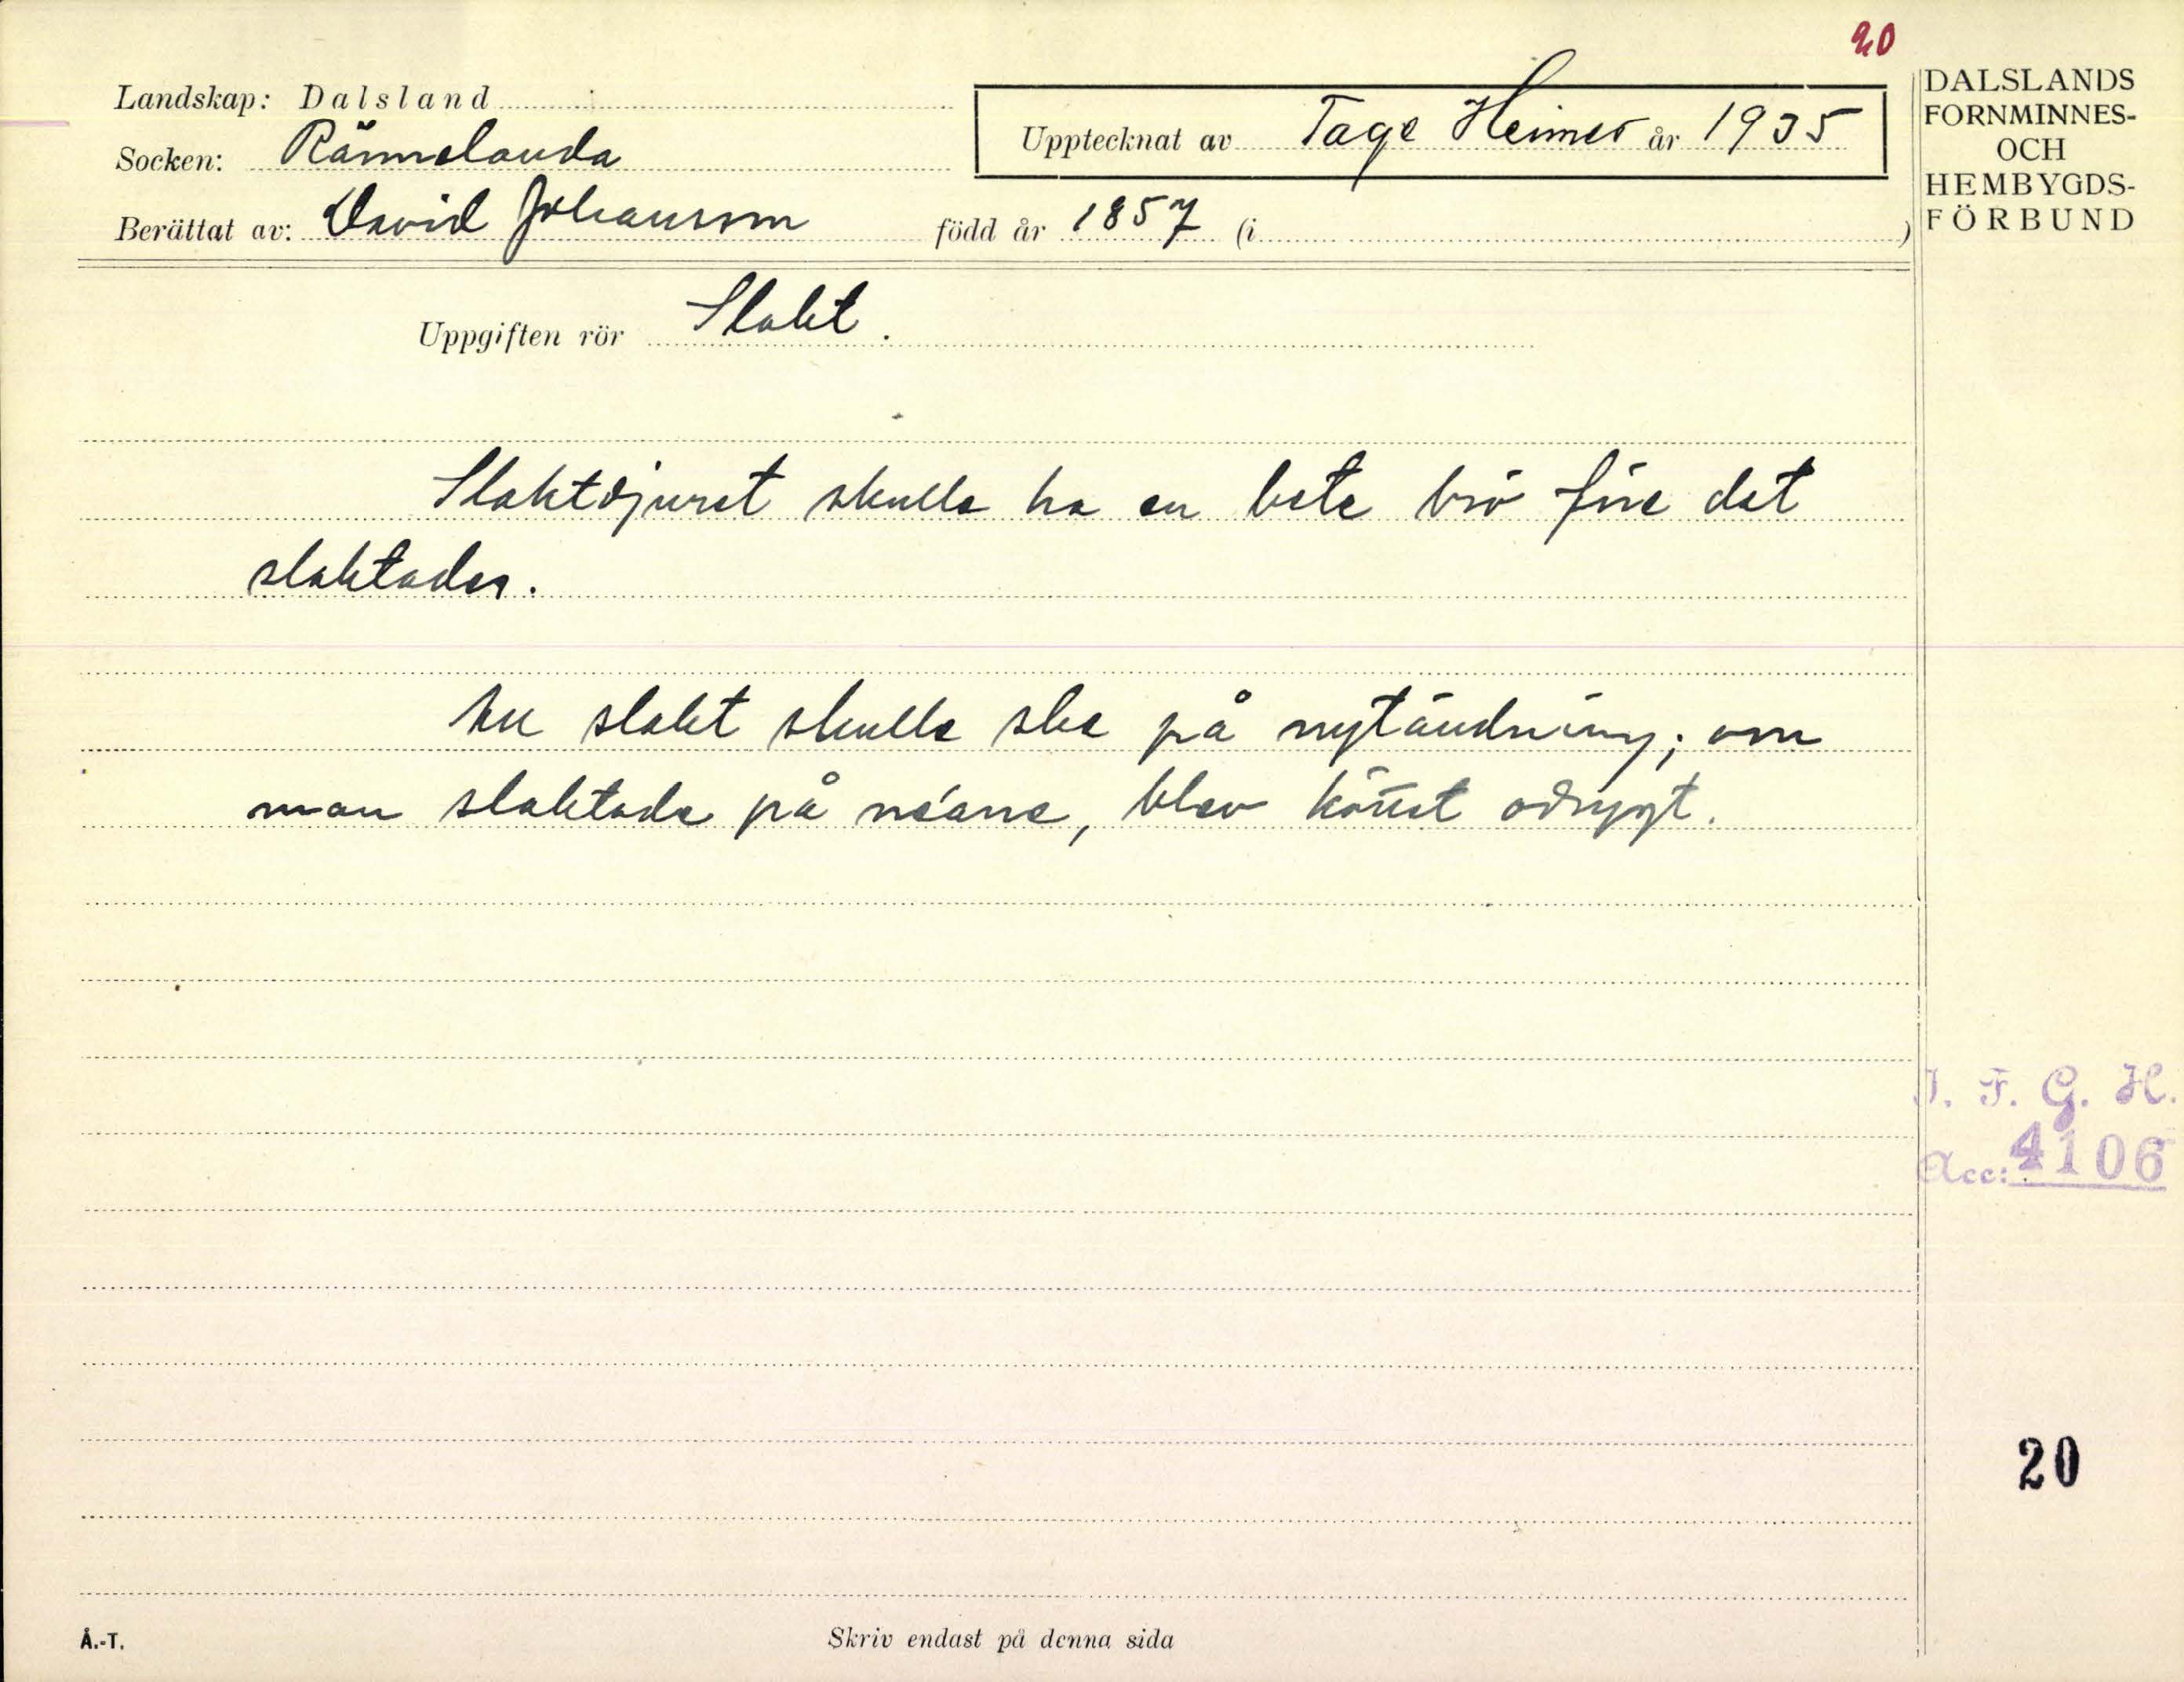 20
Landskap: Dalsland
Socken: Rännelanda
Berättat av: David Johansson född år 1857 (i )
Upptecknat av Tage Heimer år 1935
DALSLANDS
FORNMINNES-
OCH
HEMBYGDS-
FÖRBUND
Uppgiften rör Slakt.
Slaktdjuret skulle ha en bete brö före det
slaktades.
slakt skulle ske på nytändning; om
man slaktade på néane, blev köttet odrygt.
I. F. G. H.
Acc: 4106
20
Å.-T.
Skriv endast på denna sida